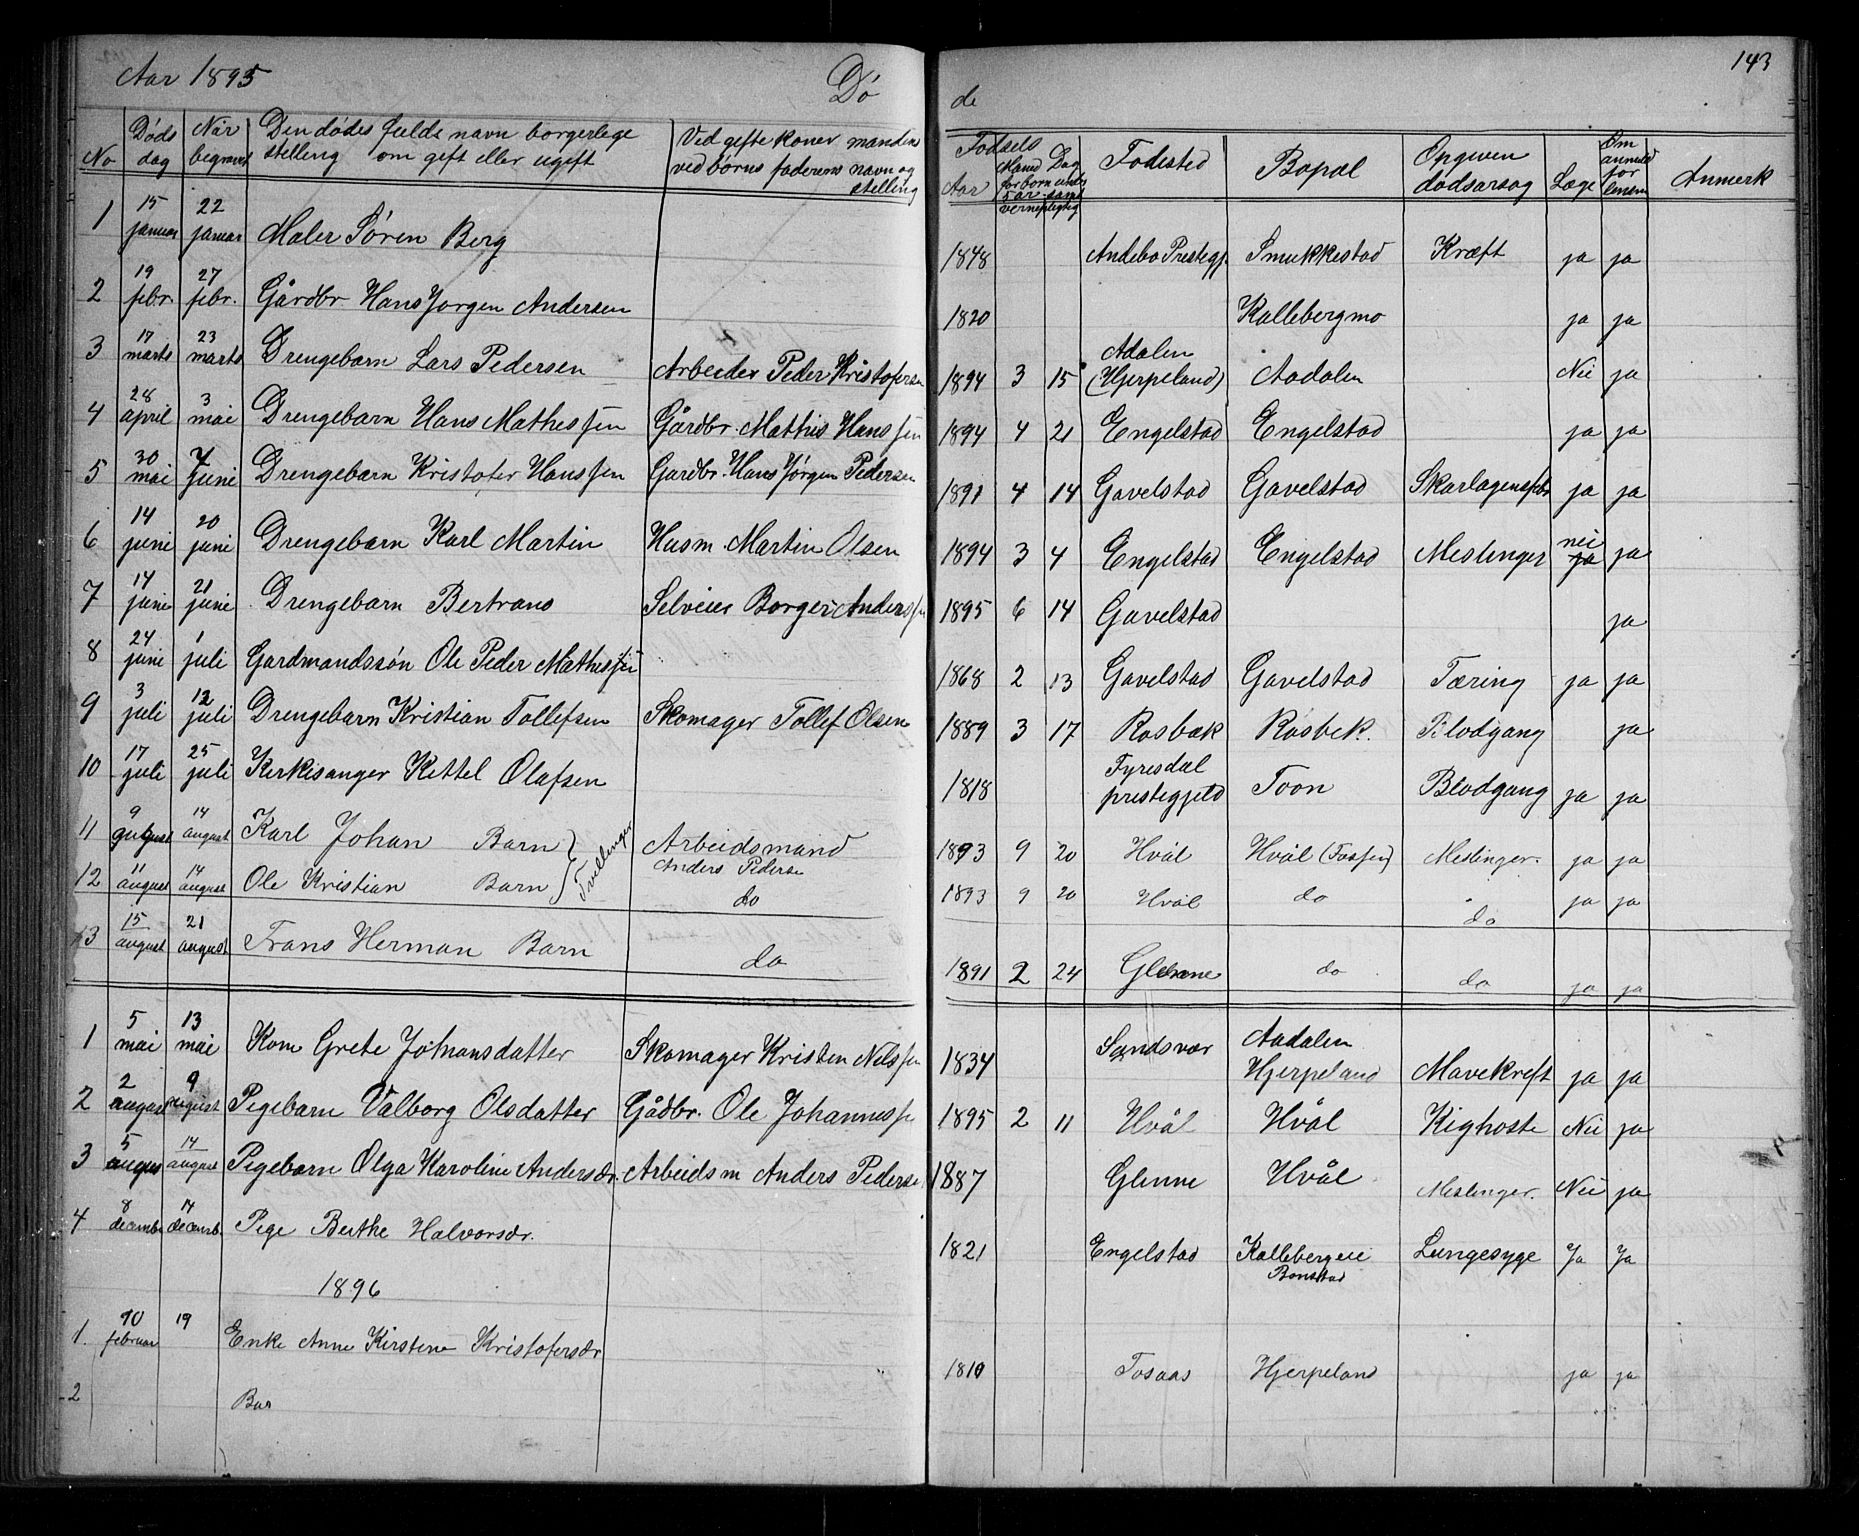 Aar 1895 Dø de 143
No Døds dag Når begravet Den dødes fulde navn borgerlege stelling om gift eller ugift Ved gifte koner manden ved børns faderens navn og stelling
Fødsels Aar Maaned Dag for børn under 5 år samt vernepligtig Fødested Bopæl Opgiven dødsarsag Læge Om anmeld for Anmerk
1 15 januar 22 januar Maler Søren Berg 1848 Andebo Prestegj. Smukkestad Kræft ja ja
2 19 febr. 27 febr. Gårdbr Hans Jorgen Andersen 1820 Kallebergmo ja ja
3 17 marts 23 marts Drengebarn Lars Pedersen Arbeider Peder Kristofersen 1894 3 15 Adalen (Hjerpeland) Aadalen Nei ja
4 28 april 3 mai Drengebarn Hans Mathessen Gårdbr. Mathis Hanssen 1894 4 21 Engelstad Engelstad ja ja
5 30 mai 7 juni Drengebarn Kristofer Hanssen Gardbr. Hans Jørgen Pedersen 1891 4 14 Gavelstad Gavelstad Skarlagensfebr ja ja
6 14 juni 20 juni Drengebarn Karl Martin Husm. Martin Olsen 1894 3 4 Engelstad Engelstad Meslinger nei ja ja
7 14 juni 21 juni Drengebarn Bertrans Selveier Borger Anderssen 1895 6 14 Gavelstad ja
8 24 juni 1 juli Gardmandssøn Ole Peder Mathessen 1868 2 13 Gavelstad Gavelstad Tæring ja ja
9 3 juli 12 juli Drengebarn Kristian Tollefsen Skomager Tollef Olsen 1889 3 17 Rosbæk Rosbek. Blodgang ja
10 17 juli 25 juli Kirkisanger Kittel Olafsen 1818 Fyresdal prestegjeld Toon Blodgang ja ja
11 9 august 14 august Karl Johan Barn } Tvillinger Arbeidsmand Anders Pederse 1893 9 20 Hvål Hvål (Fossen) Meslinger. ja ja
12 11 august 14 august Ole Kristian Barn do 1893 9 20 Hvål do do ja ja
13 15 august 21 august Frans Herman Barn do 1891 2 24 Glenne do do ja ja
1 5 mai 13 mai Kone Grete Johansdatter Skomager Kristen Nilssen 1834 Sandsvær Aadalen Hjerpeland Mavekreft ja ja
2 2 august 9 august Pigebarn Valborg Olsdatter Gådbr. Ole Johannesse 1895 2 11 Hvål Hvål Kighoste Nei ja
3 5 august 14 august Pigebarn Olga Karoline Andersdr. Arbeidsm Anders Pederse 1887 Glenne Hvål Meslinger. Nei ja
4 8 decembr 14 decemb. Pige Berthe Halvorsdr. 1821 Engelstad Kallebergeie Bonstad Lungesyge Ja Ja
1896
1. 10 februar 19 Enke Anne Kirstene Kristofersdr 1810 Fosaas Hjerpeland ja ja
2 Bar